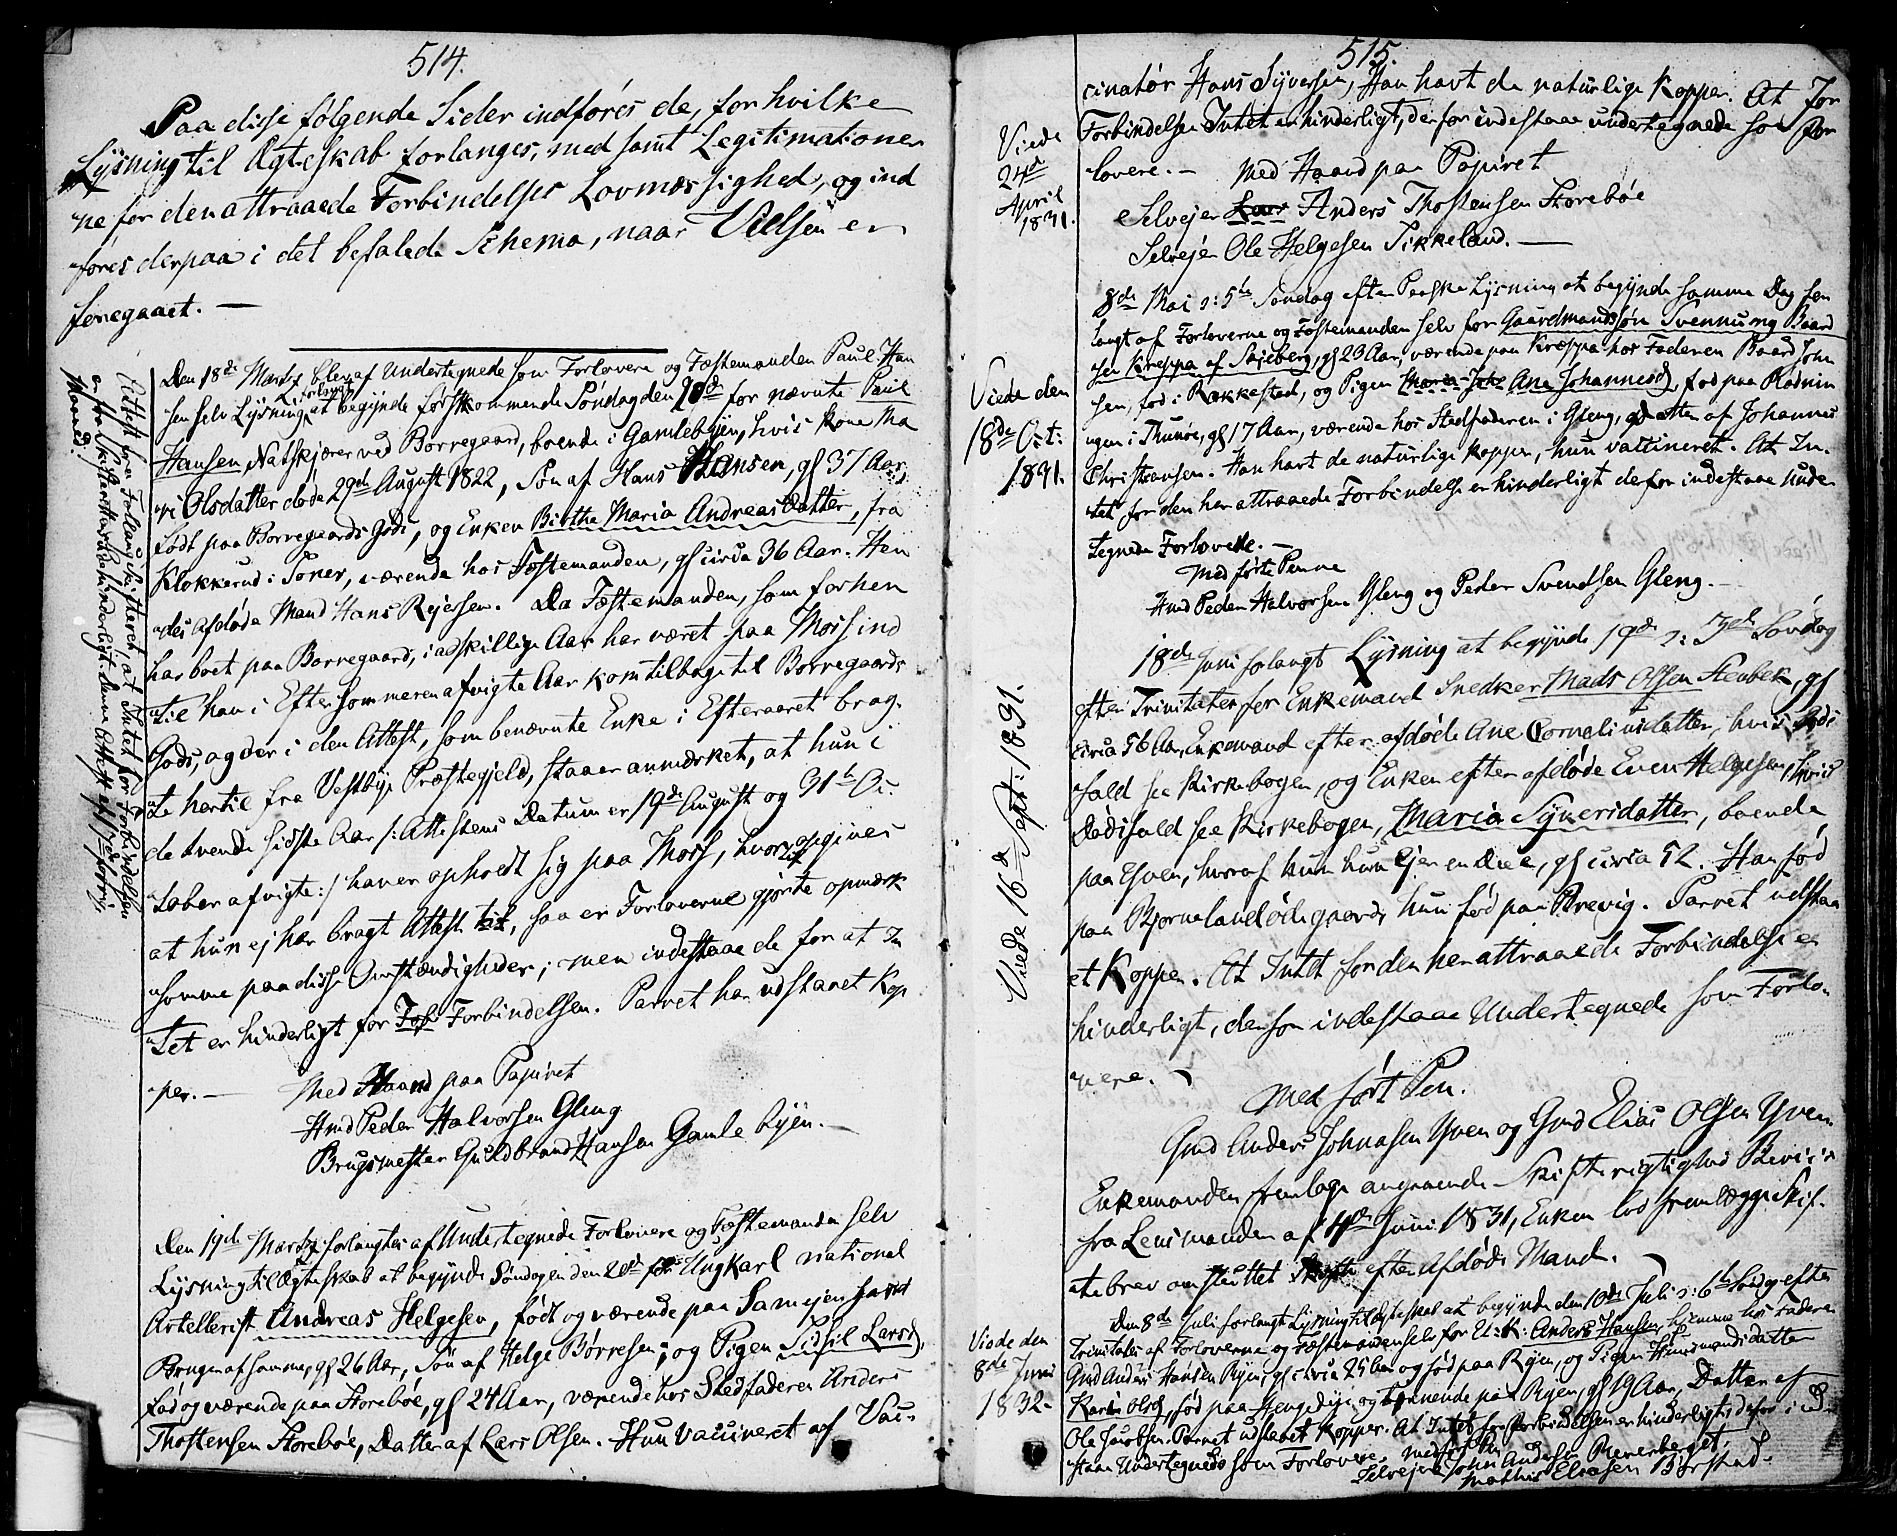 514.
Paa disse følgende Sider indføres de, for hvilke
Lysning til Ægteskab forlanges, med samt Legitimationer
ne for den attraaede Forbindelses Lovmæssighed, og ind
føres derpaa i det befalede Schema, naar Vielsen er
foregaaet. —
Den 18de Martz blev af Undertegnede som Forlovere og Fæstemanden Paul Han
sen selv Lysning forlangt at begynde førstkommende Søndag den 20de for nævnte Paul
Hansen Natskjærer ved Borregaard, boende i Gamlebyen, hvis Kone Ma
ri Olsdatter døde 29de August 1822, Søn af Hans Hansen, gl 37 Aar,
født paa Borregaards Gods, og Enken Birthe Maria Andreasdatter, fra
Klokkerud i Soner, værende hos Fæstemanden, gl circa 36 Aar. Hen
des afdøde Mand Hans Rejersen. Da Fæstemanden, som forhen
har boet paa Borregaard, i adskillige Aar har været paa Moss ind
til han i Eftersommeren afvigte Aar kom tilbage til Borregaards
Gods, og der i den Attest, som benævnte Enke i Efteraaret brag-
te hertil fra Vestbye Præstegjeld, staaer anmærket, at hun i
de tvende sidste Aar /: Attestens Datum er 19de August og 31te Oc-
tober afvigte :/ haver opholdt sig paa Moss, hvor opgives
at hun ej har bragt Attest, saa er Forloverne gjorte opmærk
somme paa disse Omstændigheder; men indestaae de for at In
tet er hinderligt for Forbindelsen. Parret har udstaaet Kop
per. — Med Haand paa Papiret
Hmd Peder Halvorsen Gleng
Brugsmester Guldbrand Hansen Gamlebyen. —
Attest fra Forlau, at Intet for Forbindelsen
er for Skifterettens hinderligt. Denne Attest af
Maanes.
Den 19de Martz forlangtes af Undertegnede Forlovere og Fæstemanden selv
Lysning til Ægteskab at begynde Søndagen den 20de for Ungkarl national
Artellerist Andreas Helgesen, født og værende paa Samejen forst
Brugen af samme, gl 26 Aar, Søn af Helge Børresen; og Pigen Sidsil Larsd,
født og værende paa Storebøe, gl 24 Aar, værende hos Stedfaderen Anders
Thostensen Storebøe, Datter af Lars Olsen. Hun vaccineret af Vac-
515.
cinatør Hans Syversen, Han havt de naturlige Kopper. At For
Forbindelsen Intet er hinderligt, derfor indestaae undertegnede som For
lovere. — Med Haand paa Papiret
Selvejer Anders Thostensen Storebøe
Selvejer Ole Helgesen Sikkeland. —
Viede
24de
April
1831.
8de Mai ɔ: 5te Søndag efter Paaske Lysning at begynde samme Dag for
langt af Forloverne og Fæstemanden selv for Gaardmandssøn Svennung Baard
sen Kreppa af Skieberg, gl 23 Aar, værende paa Kreppa hos Faderen Baard John
sen, fød i Rakkestad, og Pigen Ane Johannesd, fød paa Rodnin
gen i Thunøe, gl 17 Aar, værende hos Stedfaderen i Gleng, Datter af Johannes
Christiansen. Han havt de naturlige Kopper, hun vaccineret. At In-
tet for den her attraaede Forbindelse er hinderligt derfor indestaae Unde
tegnede Forlovere. —
Med førte Penne
Hmd Peder Halvorsen Gleng og Peder Svendsen Gleng. —
Viede den
18de Oct:
1831.
18de Juni forlangt Lysning at begynde 19de ɔ: 3de Søndag
efter Trinitates for Enkemand Snedker Mads Olsen Stenbek, gl
circa 56 Aar, Enkemand efter afdøde Ane Corneliusdatter, hvis Døds
fald see Kirkebogen, og Enken efter afdøde Even Helgesen, hvis
Dødsfald see Kirkebogen, Maria Syversdatter, boende
paa Yven, hvoraf hun Ejer en Deel, gl circa 52. Han fød
paa Bjørnelandødegaard, hun fød paa Brevig. Parret udstaa
et Kopper. At Intet for den her attraaede Forbindelse er
hinderligt, derfor indestaae Undertegnede som Forlo-
vere. —
Med ført Pen.
Gmd Anders Johnasen Yven og Gmd Elias Olsen Yven.
Viede 16de Sept: 1831.
Enkemanden fremlage angaaende Skifterigtighed Beviis
fra Lensmanden af 14de Juni 1831, Enken lod fremlægge Skif-
tebrev om sluttet Skifte efter Afdøde Mand. —
Den 8de Juli forlangt Lysning til Ægteskab at begynde den 10de Juli ɔ: 6te Søndag efter
Trinitates af Forloverne og Fæstemanden selv for U: K: Anders Hansen, hjemme hos Faderen
Gmd Anders Hansen Ryen, gl circa 25 Aar og fød paa Ryen, og Pigen Huusmandsdatter
Karen Olsd, fød paa og tjenende paa Ryen, gl 19 Aar, Datter af
Ole Jacobsen. Parret udstaaet Kopper. At Intet for Forbindelsen er hinderligt derfor i
staae Undertegnede som Forlovere. Med ført Pen
Selvejer John Andersen Reverberget.
Mathis Eliasen Børstad.
Viede den
8de Juni
1832.